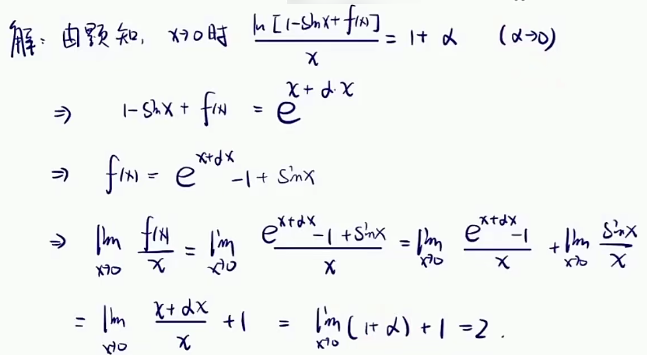 解：由题知，x→0时 ln[1-sinx+f(x)]/x = 1+α (α→0)
⇒ 1-sinx+f(x) = e^{x+α·x}
⇒ f(x) = e^{x+αx}-1+sinx
⇒ lim_{x→0} f(x)/x = lim_{x→0} (e^{x+αx}-1+sinx)/x = lim_{x→0} (e^{x+αx}-1)/x + lim_{x→0} sinx/x
= lim_{x→0} (x+αx)/x +1 = lim_{x→0}(1+α)+1=2.